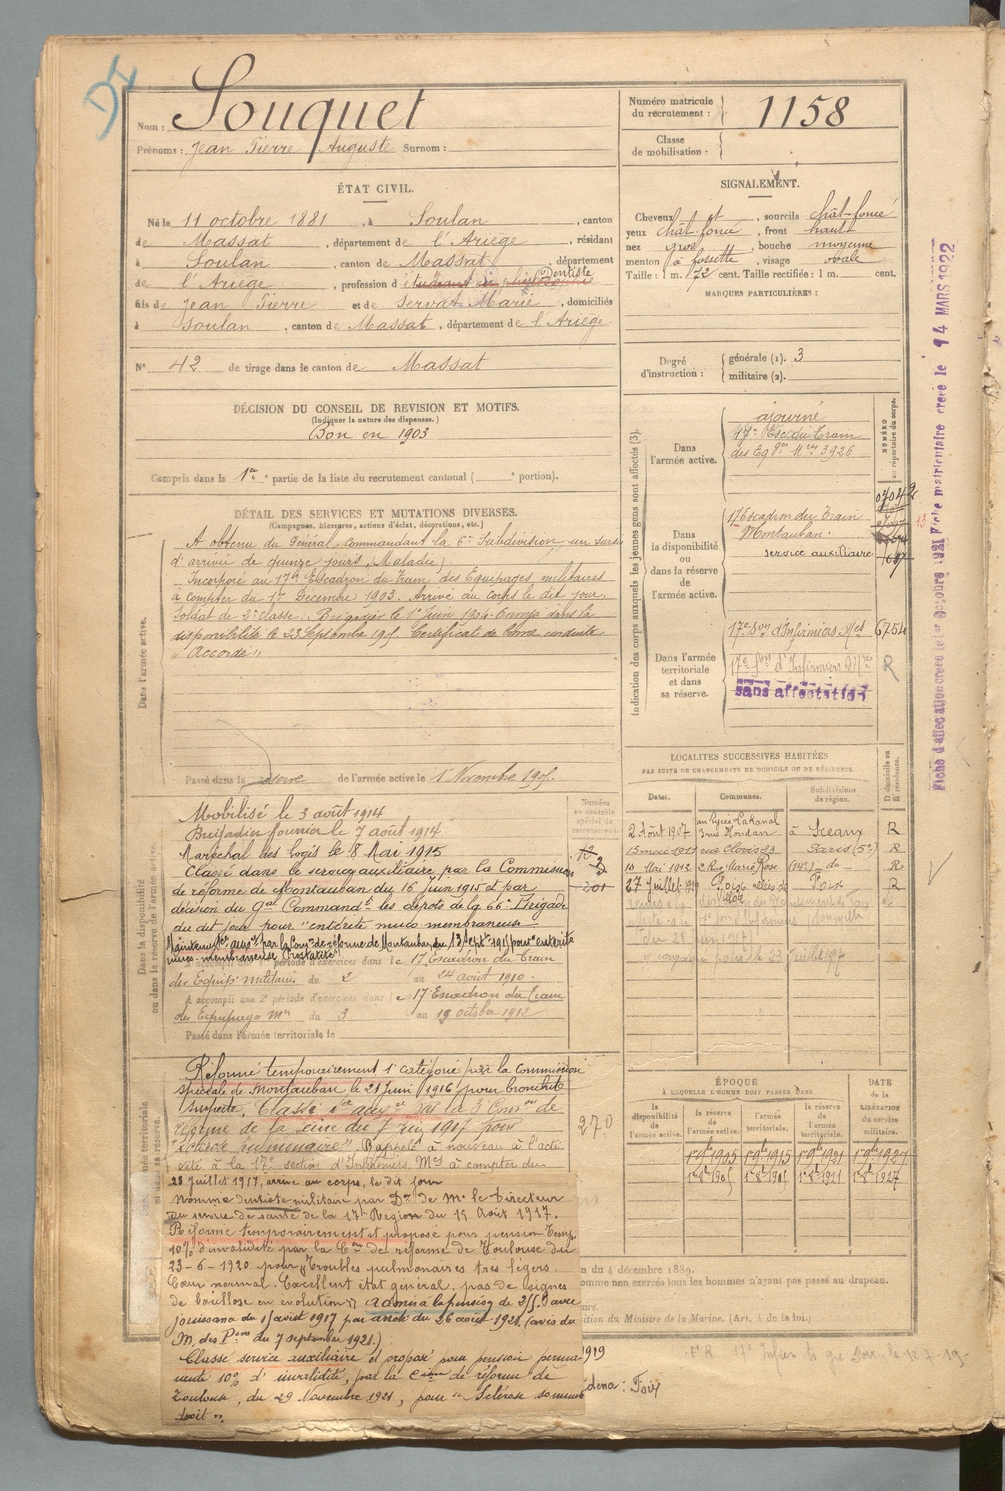 Nom : Souquet
Prénoms : Jean Pierre Auguste Surnom :
Numéro matricule du recrutement : 1158
Classe de mobilisation :
ÉTAT CIVIL.
Né le 11 octobre 1881, à Soulan, canton
de Massat, département de l'Ariège, résidant
à Soulan, canton de Massat, département
de l'Ariège, profession d'étudiant en Dentiste
fils de Jean Pierre et de Servat Marie, domiciliés
à Soulan, canton de Massat, département de l'Ariège
N° 42 de tirage dans le canton de Massat
SIGNALEMENT.
Cheveux chât, sourcils chât-foncé
yeux chât. foncé, front haut
nez gros, bouche moyenne
menton à fossette, visage ovale
Taille : 1 m. 72 cent. Taille rectifiée : 1 m. cent.
MARQUES PARTICULIÈRES :
Degré d'instruction : générale (1). 3
militaire (2).
DÉCISION DU CONSEIL DE REVISION ET MOTIFS.
(Indiquer la nature des dispenses.)
Bon en 1903
Compris dans la 1re partie de la liste du recrutement cantonal ( e portion).
DÉTAIL DES SERVICES ET MUTATIONS DIVERSES.
(Campagnes, blessures, actions d'éclat, décorations, etc.)
Dans l'armée active.
A obtenu du Général commandant la 6e Subdivision un sursis
d'arrivée de quinze jours (Maladie)
Incorporé au 17e Escadron du Train des Équipages militaires
à compter du 1er Décembre 1903. Arrivé au corps le dit jour.
Soldat de 2e classe. Brigadier le 1er Juin 1904. Envoyé dans la
disponibilité le 23 Septembre 1905 Certificat de bonne conduite
"Accordé"
Passé dans la réserve de l'armée active le 1 Novembre 1905.
Indication des corps auxquels les jeunes gens sont affectés (3).
NUMÉRO au répertoire du corps.
Dans l'armée active.
ajourné
17e Esc. du Train
des Eq. 3926
Dans la disponibilité ou dans la réserve de l'armée active.
17 Escadron du Train
Montauban.
service auxiliaire
Dans l'armée territoriale et dans sa réserve.
17e Son d'Infirmiers Mes 6754
17e Son d'Infirmiers Mres R
sans affectation
Fiche d'affectation créée le 1er Octobre 1921 Fiche matriculaire créée le 14 MARS 1922
Dans la disponibilité ou dans la réserve de l'armée active.
Numéro au contrôle spécial du recrutement.
Mobilisé le 3 août 1914
Brigadier fourrier le 7 août 1914
Maréchal des logis le 8 Mai 1915
Classé dans le service auxiliaire par la Commission
de réforme de Montauban du 16 Juin 1915 et par
décision du Gal Commandt les dépôts de la 66e Brigade
du dit jour pour "entérite muco membraneuse
Maintenu Ser auxre par la Comon de réforme de Montauban du 13 Septbre 1915 pour "entérite
muco-membraneuse Prostatite"
période d'exercices dans le 17 Escadron du Train
des Equip. militaires du 2 au 24 août 1910.
A accompli une 2e période d'exercices dans le 17 Escadron du Train
des Equipages Mres du 3 au 19 octobre 1912
Passé dans l'armée territoriale le
LOCALITÉS SUCCESSIVES HABITÉES
PAR SUITE DE CHANGEMENTS DE DOMICILE OU DE RÉSIDENCE.
Dates. Communes. Subdivisions de région. D domicile ou R résidence.
2 Août 1907 au Lycée Lakanal à Sceaux R
15 mai 1911 rue Clovis 23 Paris (5e) R
10 Mai 1912 2 Rue Marie Rose (14e) do R
27 Juillet Foix Foix R
ÉPOQUE
À LAQUELLE L'HOMME DOIT PASSER DANS
la disponibilité de l'armée active. la réserve de l'armée active. l'armée territoriale. la réserve de l'armée territoriale. DATE de la LIBÉRATION du service militaire.
1er 9bre 1905 1er 9bre 1915 1er 9bre 1921 1er 9bre 1927
1er 8bre 1905 1er 8bre 1921 1er 8bre 1927
Réformé temporairement 1e catégorie par la Commission
spéciale de Montauban le 21 Juin 1916 pour bronchite
suspecte, Classé Sce auxre par la 3e Comon de
réforme de la Seine du 7 1917 pour
"Sclérose pulmonaire" Rappelé à nouveau à l'acti-
vité à la 17e section d'Infirmiers Mres à compter du
270
28 Juillet 1917, arrivé au corps, le dit jour
Nommé dentiste militaire par Don de Mr le Directeur
du service de santé de la 17e Région du 15 Août 1917.
Réformé temporairement et proposé pour pension temp.
10% d'invalidité par la Con de réforme de Toulouse du
23-6-1920 pour "Troubles pulmonaires très légers.
Cœur normal. Excellent état général, pas de signes
de bacillose en évolution" admis à la pension de avec
jouissance du par arrêté du 26 août 1921 (avis du
M. des Pons du 7 septembre 1921.)
Classé service auxiliaire et proposé pour pension perma-
nente 10% d'invalidité, par la Comon de réforme de
Toulouse, du 29 Novembre 1921, pour "Sclérose sommet
droit".
du 4 décembre 1889.
omme non exercés tous les hommes n'ayant pas passé au drapeau.
ition du Ministre de la Marine. (Art. 4 de la loi.)
1919
: Foix